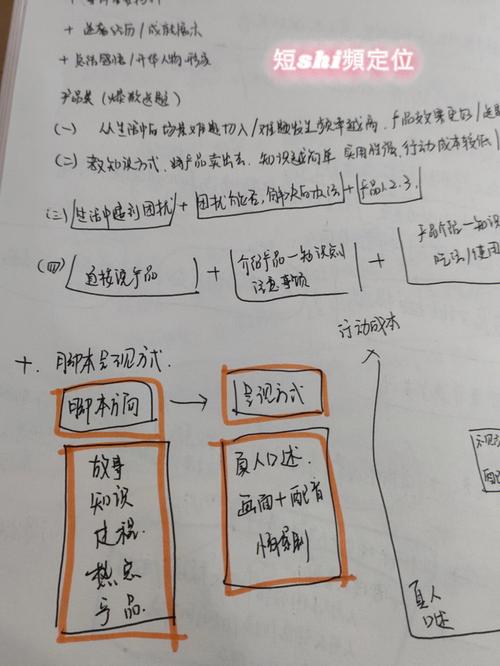 短shi頻定位
产品类(爆款选题)
(一) 从生活中的场景难题切入/难题发生频率越高,产品效果更好/
(二) 教知识方式,将产品卖出去,知识越简单 实用性强,行动成本较低/
(三) 生活中遇到困扰 + 困扰介绍,解决的办法 + 产品1.2.3.
(四) 直接说产品 + 介绍产品—知识 注意事项 + 产品介绍—知识 吃法/使用
行动成本
十、脚本呈现方式.
脚本方向 → 呈现方式
故事
知识
过程.
热点
产品.
真人口述.
画面+配音
情景剧
真人
口述